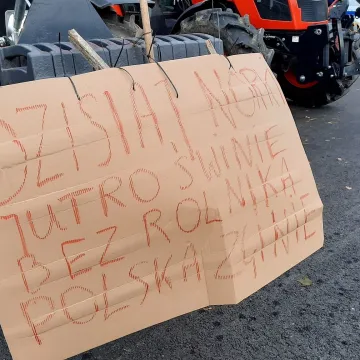 DZISIAJ NORKI
JUTRO ŚWINIE
BEZ ROLNIKA
POLSKA ZGINIE